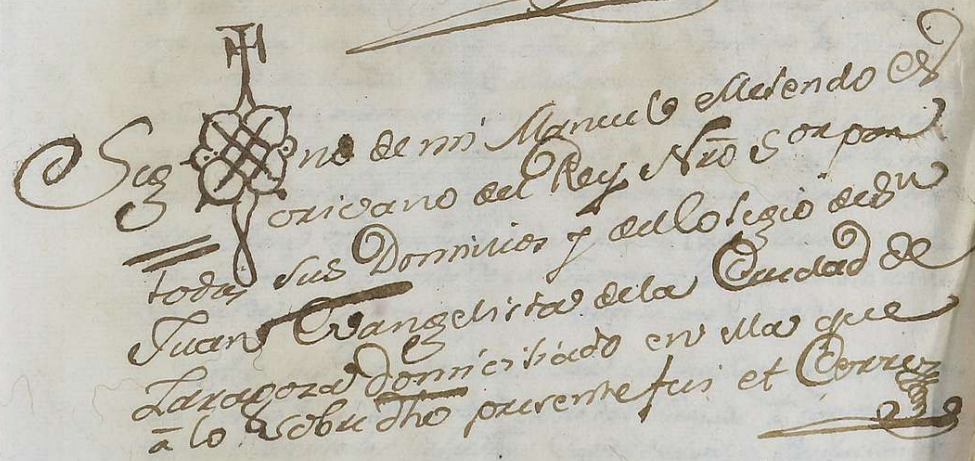 Sig no de mi Manuel Melendo Es
crivano del Rey Nro Sor por
todos sus Dominios y del Colegio de Sn
Juan Evangelista de la Ciudad de
Zaragoza domiciliado en ella que
â lo sobre dho presente fui et Cerre